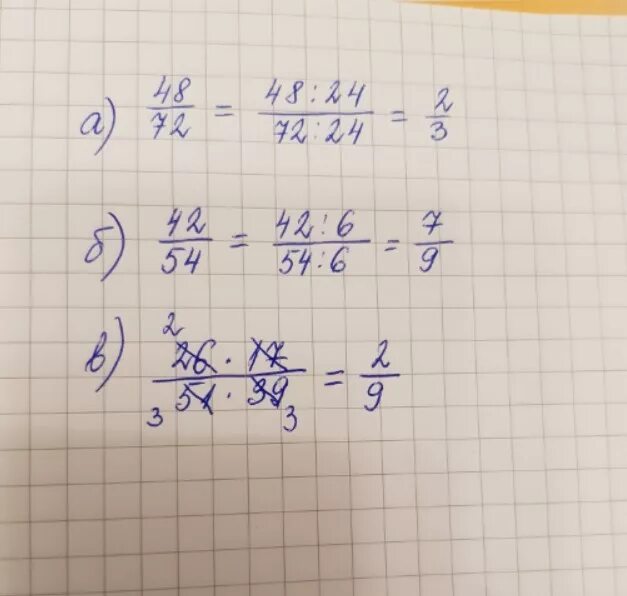 а) 48/72 = 48:24/72:24 = 2/3
б) 42/54 = 42:6/54:6 = 7/9
в) 2 26 · 17 / 3 51 · 39 3 = 2/9